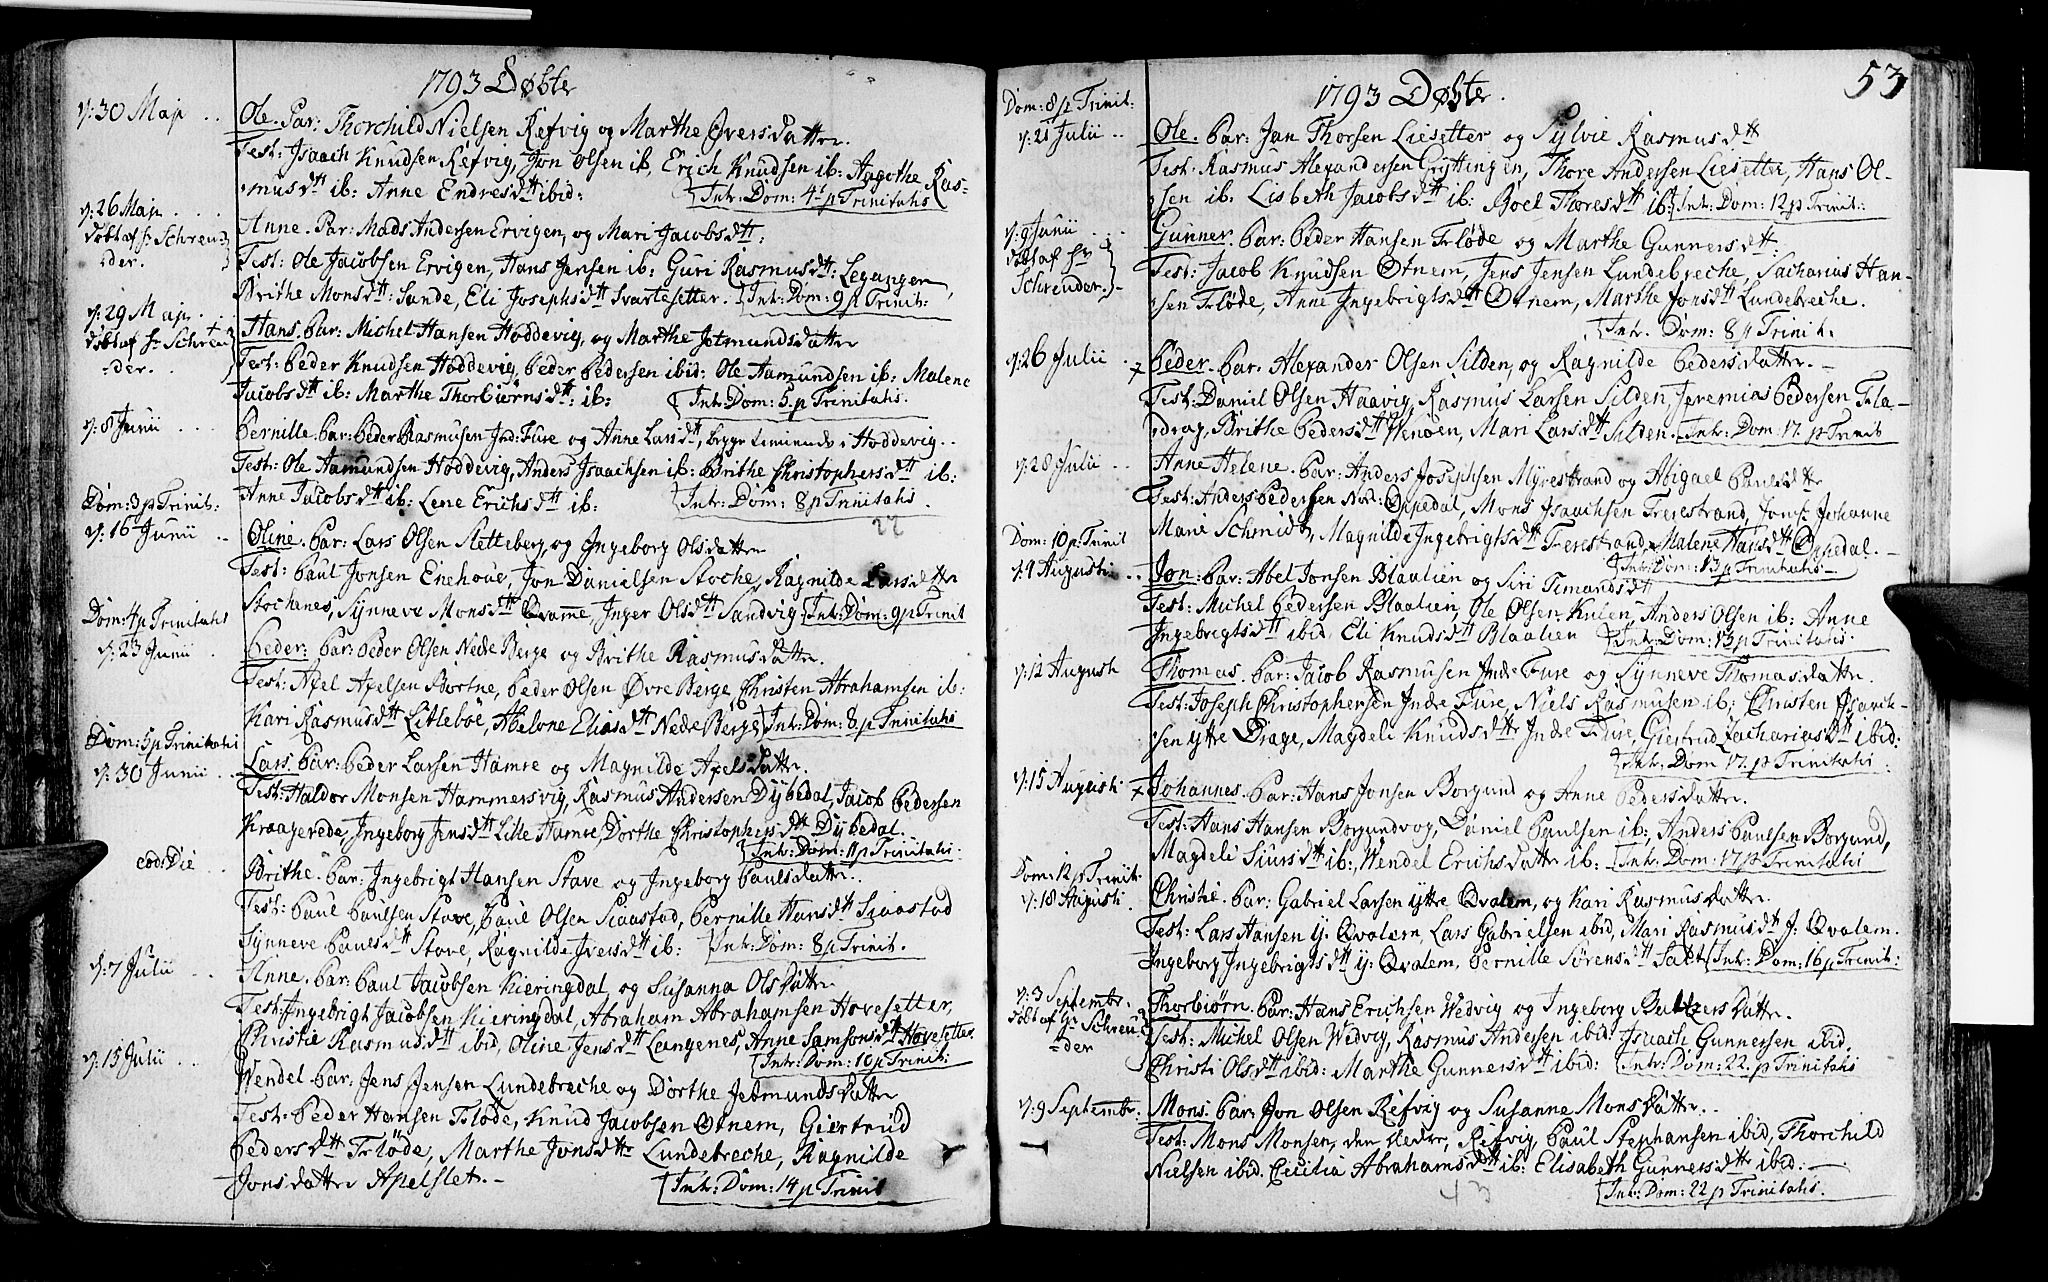 1793 Døbte
d: 30 Maj
Ole. Par: Thorchild Nielsen Refvig og Marthe Iversdatter.
Test: Isaach Knudsen Refvig, Jon Olsen ib, Erich Knudsen ib: Aagothe Ras-
musdtt ib: Anne Endresdtt ibid: Intr: Dom: 4 p Trinitatis
d: 26 Maj
døbt af Hr Schreu-
der.
Anne. Par: Mads Andersen Ervigen, og Mari Jacobsdtt:
Test: Ole Jacobsen Ervigen, Hans Jensen ib: Guri Rasmusdtt: Leganger,
Brithe Monsdtt: Sande, Eli Josephsdtt Svartesetter. Intr: Dom: 9 p Trinit:
d: 29 Maj
døbt af Hr Schreu
der.
Hans. Par: Michel Hansen Hoddevig, og Marthe Jetmundsdatter
Test: Peder Knudsen Hoddevig, Peder Pedersen ibid: Ole Aamundsen ib: Malene
Jacobsdtt ib: Marthe Thorbiørnsdtt: ib: Intr: Dom: 5 p Trinitatis.
d: 8 Junii
Pernille. Par: Peder Rasmusen Ind: Fure og Anne Larsdtt, begge tienende i Hoddevig.
Test: Ole Aamundsen Hoddevig, Anders Isaachsen ib: Brithe Christophersdtt ib:
Anne Jacobsdtt ib: Lene Erichsdtt ib: Intr: Dom: 8 p Trinitatis
22
Dom: 3 p Trinit:
d: 16 Junii
Oline. Par: Lars Olsen Setteberg, og Ingeborg Olsdatter
Test: Paul Jonsen Enehoue, Jon Danielsen Stoche, Ragnilde Larsdatter
Stochenes, Synneve Monsdtt Qvamme, Inger Olsdtt Sandvig, Intr: Dom: 9 p Trinit
Dom: 4 p Trinitatis
d: 23 Junii
Peder: Par: Peder Olsen Nedre Berge og Brithe Rasmusdatter.
Test: Axel Axelsen Bortne, Peder Olsen Øvre Berge, Christen Abrahamsen ib:
Kari Rasmusdtt Litleboe, Abelone Eliasdtt Nedre Berge Intr: Dom: 8 p Trinitatis
Dom: 5 p Trinitatis
d: 30 Junii
Lars. Par: Peder Larsen Hamre og Magnilde Axelsdatter.
Test: Haldor Monsen Hammersvig, Rasmus Andersen Dybedal, Jacob Pedersen
Kraagerede, Ingeborg Jensdtt Lille Hamre, Dorthe Christophersdtt Dybedal.
Intr: Dom: 11 p Trinitatis:
eod: Die
Brithe. Par: Ingebrigt Hansen Stave og Ingeborg Paulsdatter.
Test: Paul Paulsen Stave, Paul Olsen Siaastad, Pernille Hansdtt Siaastad
Synneve Paulsdtt Stave, Ragnilde Iversdtt ib: Intr: Dom: 8 p Trinit.
d: 7 Julii
Anne. Par: Paul Jacobsen Kieringdal og Susanna Olsdatter
Test: Ingebrigt Jacobsen Kieringdal, Abraham Abrahamsen Hovesetter,
Christie Rasmusdtt ibid, Oline Jensdtt Langenes, Anne Samsonsdtt Hovesetter
Intr: Dom: 10 p Trinit:
d: 15 Julii
Wendel. Par: Jens Jensen Lundebreche og Dorthe Jetmundsdatter
Test: Peder Hansen Fløde, Knud Jacobsen Otnem, Giertrud
Pedersdtt Fløde, Marthe Jonsdtr Lundebreche, Ragnilde
Jonsdatter Apelset. Intr: Dom: 14 p Trinit
1793 Døbte.
53
Dom: 8 p Trinit:
d: 21 Julii
Ole. Par: Jan Thorsen Liesetter og Sylvie Rasmusdtt
Test: Rasmus Alexandersen Gryttingen, Thore Andersen Liesetter, Hans Ol-
sen ib. Lisbeth Jacobsdtt ib: Boel Thoresdtt ib: Intr: Dom: 12 p Trinit:
d: 9 Junii
døbt af Hr
Schreuder.
Gunner. Par: Peder Hansen Fløde og Marthe Gunnersdtt:
Test: Jacob Knudsen Otnem, Jens Jensen Lundebreche, Sacharius Han-
sen Fløde, Anne Ingebrigtsdtt Otnem, Marthe Jonsdtt Lundebreche.
Intr: Dom: 8 p Trinit.
d: 26 Julii
Peder. Par: Alexander Olsen Silden, og Ragnilde Pedersdatter.
Test: Daniel Olsen Haavig, Rasmus Larsen Silden, Jeremias Pedersen Fla-
drag, Brithe Pedersdtt Venøen, Mari Larsdtt Silden. Intr: Dom: 17. p Trinit
d: 28 Julii
Anne Helene. Par: Anders Josephsen Myrestrand og Abigael Paulsdtr
Test: Anders Pedersen Nord: Oppedal, Mons Isaachsen Frerestrand, Jomf: Johanne
Marie Schmidt, Magnilde Ingebrigtsdtt Frerestrand, Malene Hansdtt Oppedal.
Intr: Dom: 13 p Trinitatis
Dom: 10 p: Trinit
d: 4 Augusti
Jon: Par: Abel Jonsen Blaalien og Siri Timundsdtt
Test: Michel Pedersen Blaalien, Ole Olsen Kulen, Anders Olsen ib: Anne
Ingebrigtsdtt ibid, Eli Knudsdtt Blaalien Intr: Dom: 13 p Trinitatis.
d: 12 Augusti
Thomas. Par: Jacob Rasmusen Indre Fure og Synneve Thomasdatter.
Test: Joseph Christophersen Indre Fure, Niels Rasmusen ib: Christen Isaach-
sen ytre Drage, Magdeli Knudsdtr Indre Fure, Giertrud Zachariasdtt ibid:
Intr: Dom 17. p Trinitatis
d: 15 Augusti
Johannes. Par: Hans Jonsen Borgund og Anne Pedersdatter.
Test: Hans Hansen Borgundvog, Daniel Paulsen ib:, Anders Paulsen Borgund,
Magdeli Siursdtt ib:, Wendel Erichsdatter ib: Intr: Dom: 17 p Trinitatis
Dom: 12 p Trinit.
d: 18 Augusti
Christie. Par: Gabriel Larsen ytre Qvalem, og Kari Rasmusdatter.
Test: Lars Hansen y: Qvalem, Lars Gabrielsen ibid, Mari Rasmusdtt J: Qvalem.
Ingeborg Ingebrigtsdtt y: Qvalem, Pernille Sørensdtt Salt Intr: Dom: 16 p Trinit:
d: 3 Septembr.
døbt af Hr Schreu
der
Thorbiørn. Par: Hans Erichsen Wedvig og Ingeborg Baltzersdatter.
Test: Michel Olsen Wedvig, Rasmus Andersen ibid: Isaach Gunnersen ibid.
Christi Olsdtt ibid: Marthe Gunnersdtt ibid: Intr: Dom: 22. p Trinitatis
d: 9 Septembr:
Mons. Par: Jon Olsen Refvig og Susanne Monsdatter.
Test: Mons Monsen, den Ældre, Refvig, Paul Stephansen ibid, Thorchild
Nielsen ibid. Cecilia Abrahamsdtt ib: Elisabeth Gunnersdtr ibid:
Intr: Dom: 22 p Trinitatis.
43